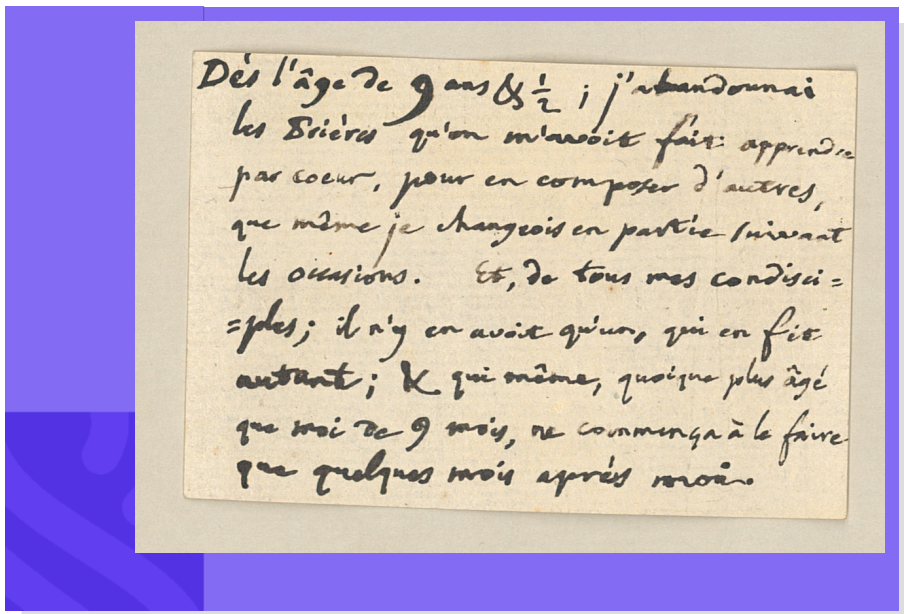 Dès l'âge de 9 ans & 1/2 ; j'abandonnai
les Prières qu'on m'avoit fait apprendre
par coeur, pour en composer d'autres,
que même je changeois en partie suivant
les occasions. Et, de tous mes condisci=
=ples ; il n'y en avoit qu'un, qui en fit
autant ; & qui même, quoique plus âgé
que moi de 9 mois, ne commença à le faire
que quelques mois après moi.